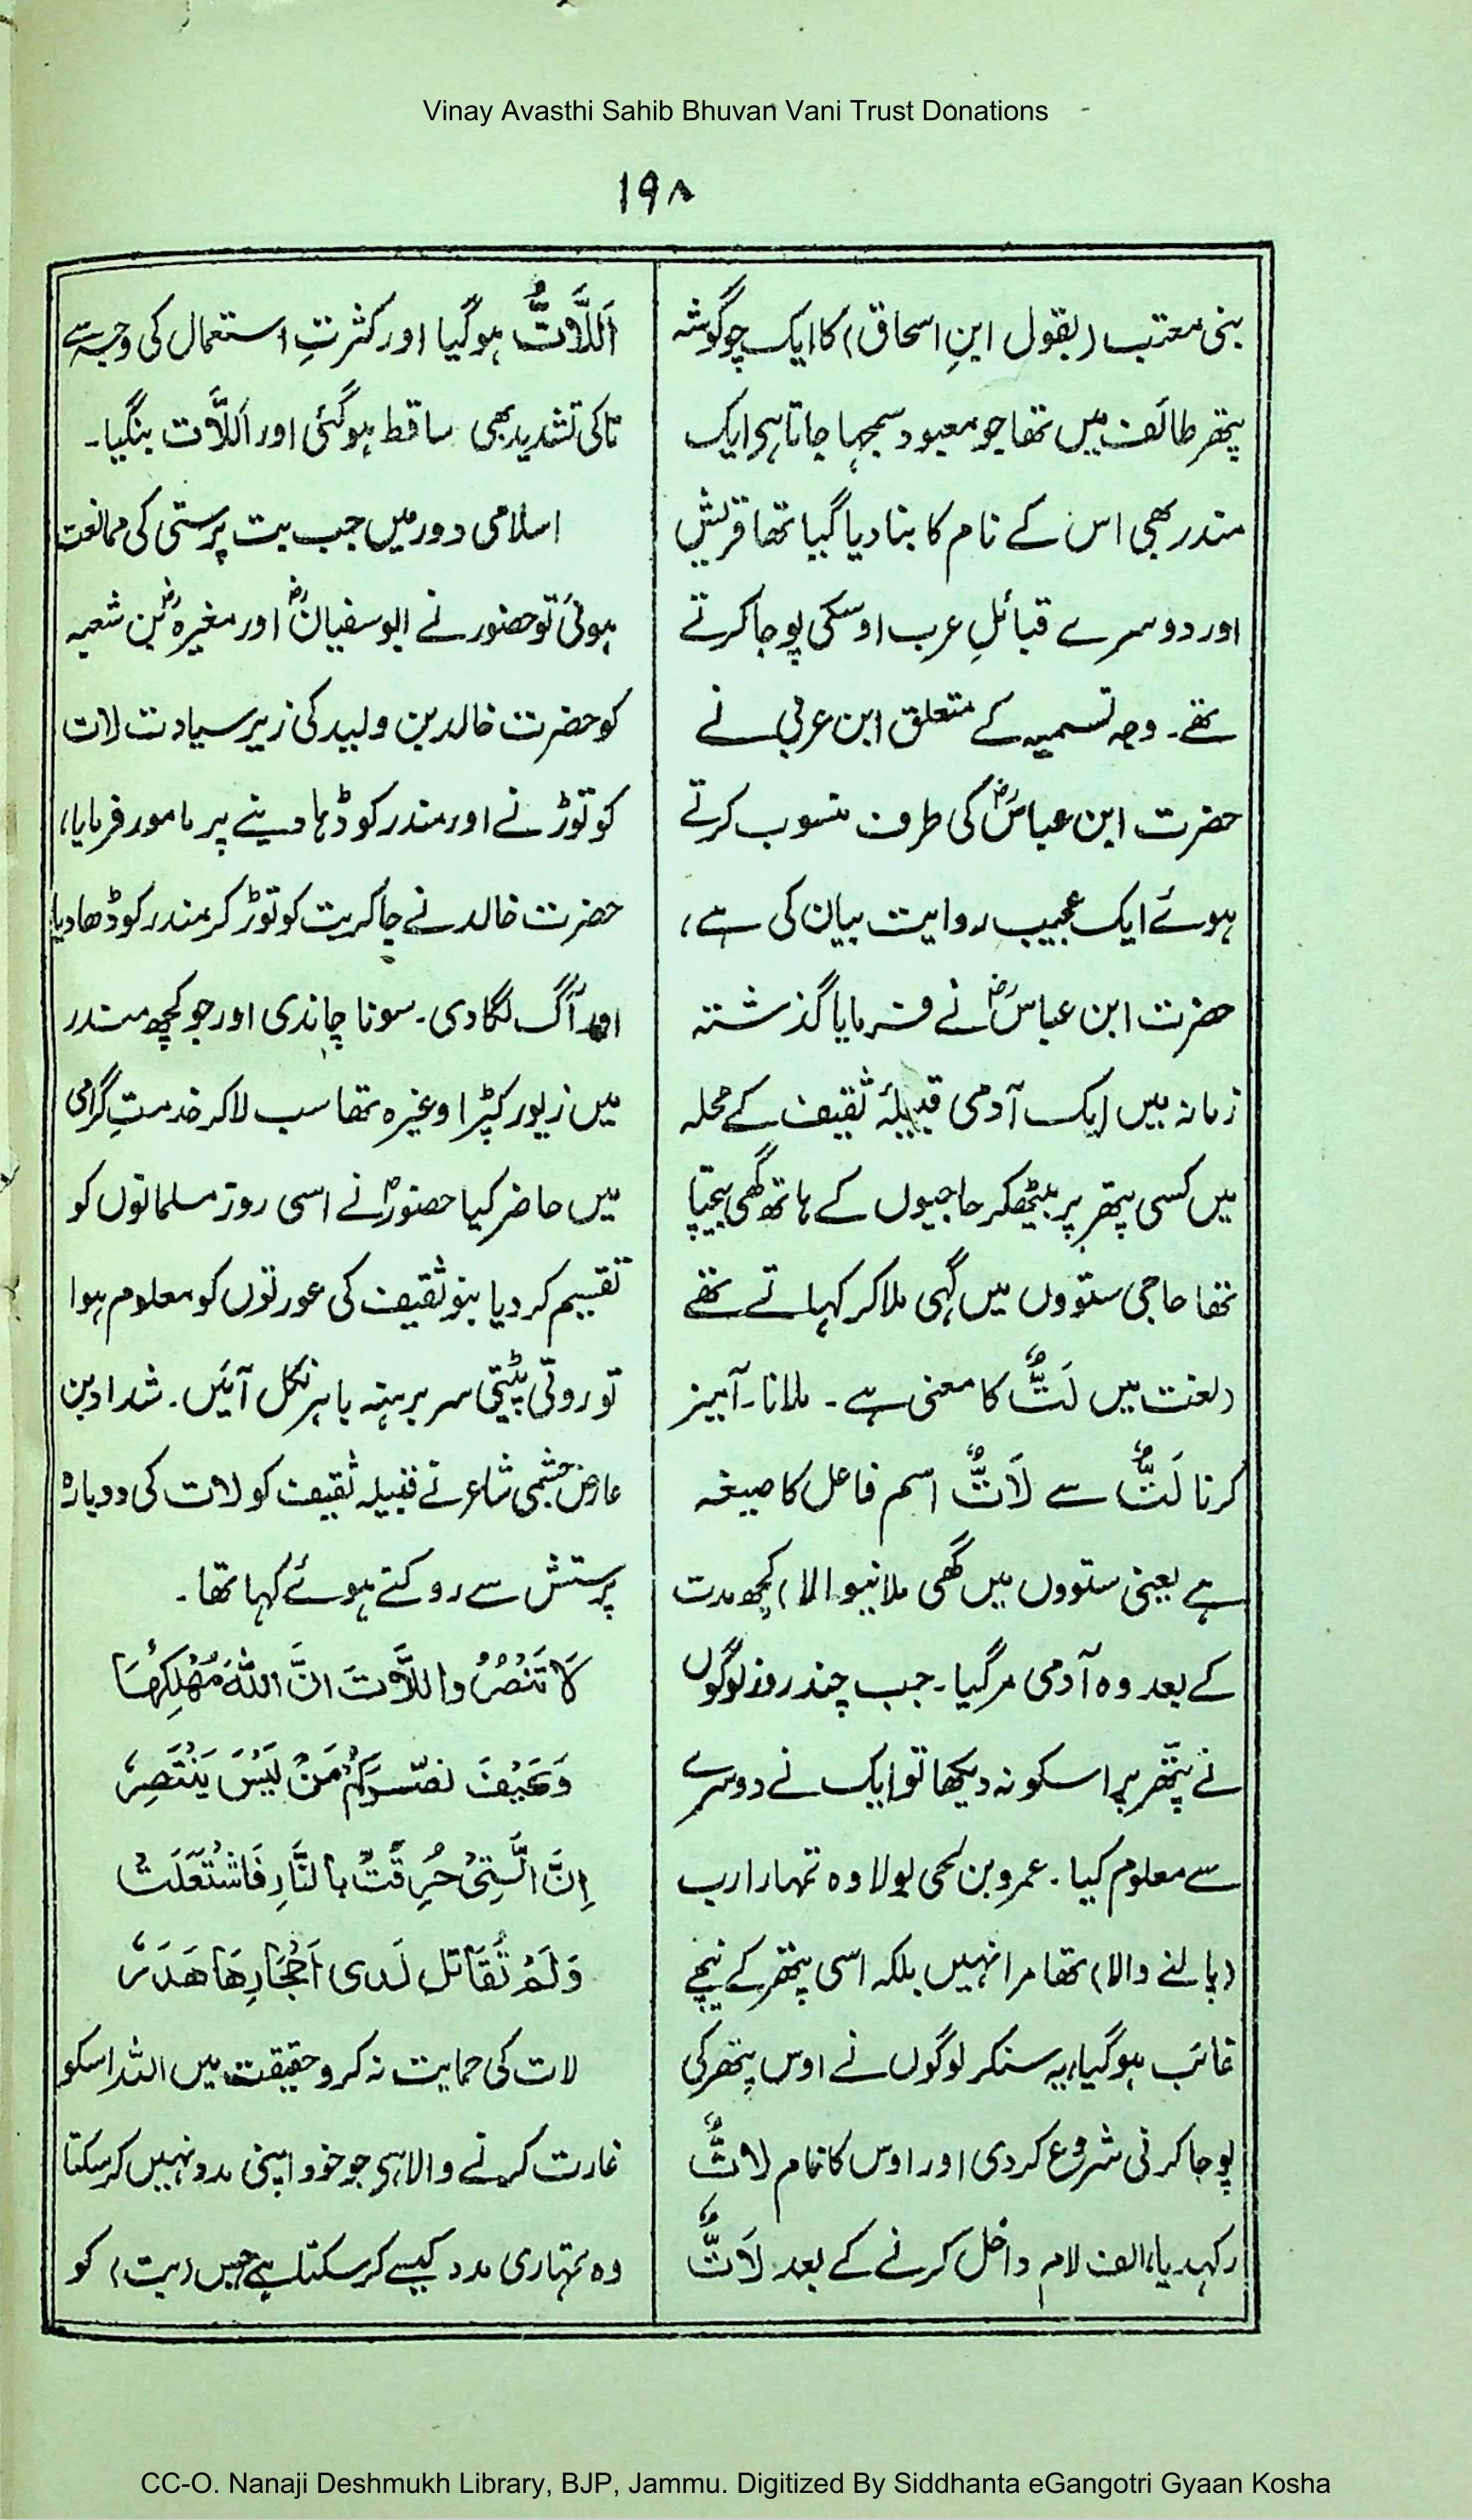 Vinay Avasthi Sahib Bhuvan Vani Trust Donations
۱۹۸
بنی معتب (بقول ابنِ اسحاق) کا ایک چوگوشہ
پتھر طائف میں تھا جو معبود سمجہا جاتا ہی ایک
مندر بھی اس کے نام کا بنا دیا گیا تھا قریش
اور دوسرے قبائلِ عرب اوسکی پوجا کرتے
تھے۔ وجہ تسمیہ کے متعلق ابن عربی نے
حضرت ابن عباسؓ کی طرف منسوب کرتے
ہوئے ایک عجیب روایت بیان کی ہے،
حضرت ابن عباسؓ نے فرمایا گذشتہ
زمانہ میں ایک آدمی قبیلۂ ثقیف کے محلہ
میں کسی پتھر پر بیٹھکر حاجیوں کے ہاتھ گھی بیچتا
تھا حاجی ستووں میں گہی ملا کر کہاتے تھے
(لغت میں لَتٌّ کا معنی ہے۔ ملانا۔ آمیز
کرنا لَتٌّ سے لَاتٌّ اسم فاعل کا صیغہ
ہے یعنی ستووں میں گھی ملانیوالا) کچھ مدت
کے بعد وہ آدمی مر گیا۔ جب چند روز لوگوں
نے پتھر پر اسکو نہ دیکھا تو ایک نے دوسرے
سے معلوم کیا۔ عمرو بن لحی بولا وہ تمہارا رب
(پالنے والا) تھا مرا نہیں بلکہ اسی پتھر کے نیچے
غائب ہو گیا، یہ سنکر لوگوں نے اوس پتھر کی
پوجا کرنی شروع کردی اور اوس کا نام لاتٌّ
رکہدیا، الف لام داخل کرنے کے بعد لَاتٌّ
اَللَّاتُّ ہو گیا اور کثرتِ استعمال کی وجہ سے
تا کی تشدید بھی ساقط ہو گئی اور اَللَّات بنگیا۔
اسلامی دور میں جب بت پرستی کی ممانعت
ہوئی تو حضور نے ابوسفیانؓ اور مغیرہؓ بن شعبہ
کو حضرت خالد بن ولید کی زیر سیادت لات
کو توڑنے اور مندر کو ڈہا دینے پر مامور فرمایا،
حضرت خالد نے جا کر بت کو توڑ کر مندر کو ڈھا دیا
اور آگ لگا دی۔ سونا چاندی اور جو کچھ مندر
میں زیور کپڑا وغیرہ تھا سب لا کر خدمتِ گرامی
میں حاضر کیا حضورؐ نے اسی روز مسلمانوں کو
تقسیم کر دیا بنو ثقیف کی عورتوں کو معلوم ہوا
تو روتی پٹیتی سر برہنہ باہر نکل آئیں۔ شداد بن
عارض جشمی شاعر نے قبیلہ ثقیف کو لات کی دوبارہ
پرستش سے روکتے ہوئے کہا تھا۔
لَا تَنْصُرُوا اللَّاتَ اِنَّ اللهَ مُهْلِكُهَا
وَكَيْفَ نصركُمْ مَنْ لَيْسَ يَنْتَصِرُ
اِنَّ الَّتِيْ حُرِقَتْ بِالنَّارِ فَاشْتَعَلَتْ
وَلَمْ تُقَاتل لَدى اَحْجَارِهَا هَدَرُ
لات کی حمایت نہ کرو حقیقت میں اللہ اسکو
غارت کرنے والا ہی جو خود اپنی مدد نہیں کر سکتا
وہ تمہاری مدد کیسے کر سکتا ہے جس (بت) کو
CC-O. Nanaji Deshmukh Library, BJP, Jammu. Digitized By Siddhanta eGangotri Gyaan Kosha